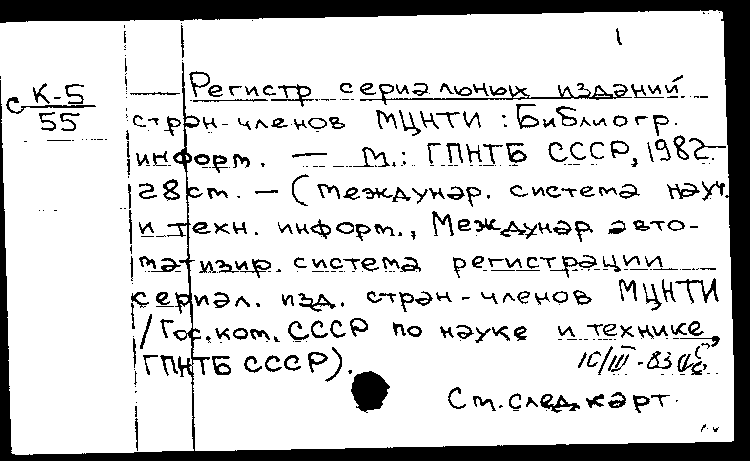 1
с К-5
55
Регистр сериальных изданий
стран-членов МЦНТИ : Библиогр.
информ. — М.: ГПНТБ СССР, 1982-
28см. — (Междунар. система науч.
и техн. информ., Междунар авто-
матизир. система регистрации
сериал. изд. стран-членов МЦНТИ
/ Гос.ком. СССР по науке и технике,
ГПНТБ СССР).
См.след.карт.